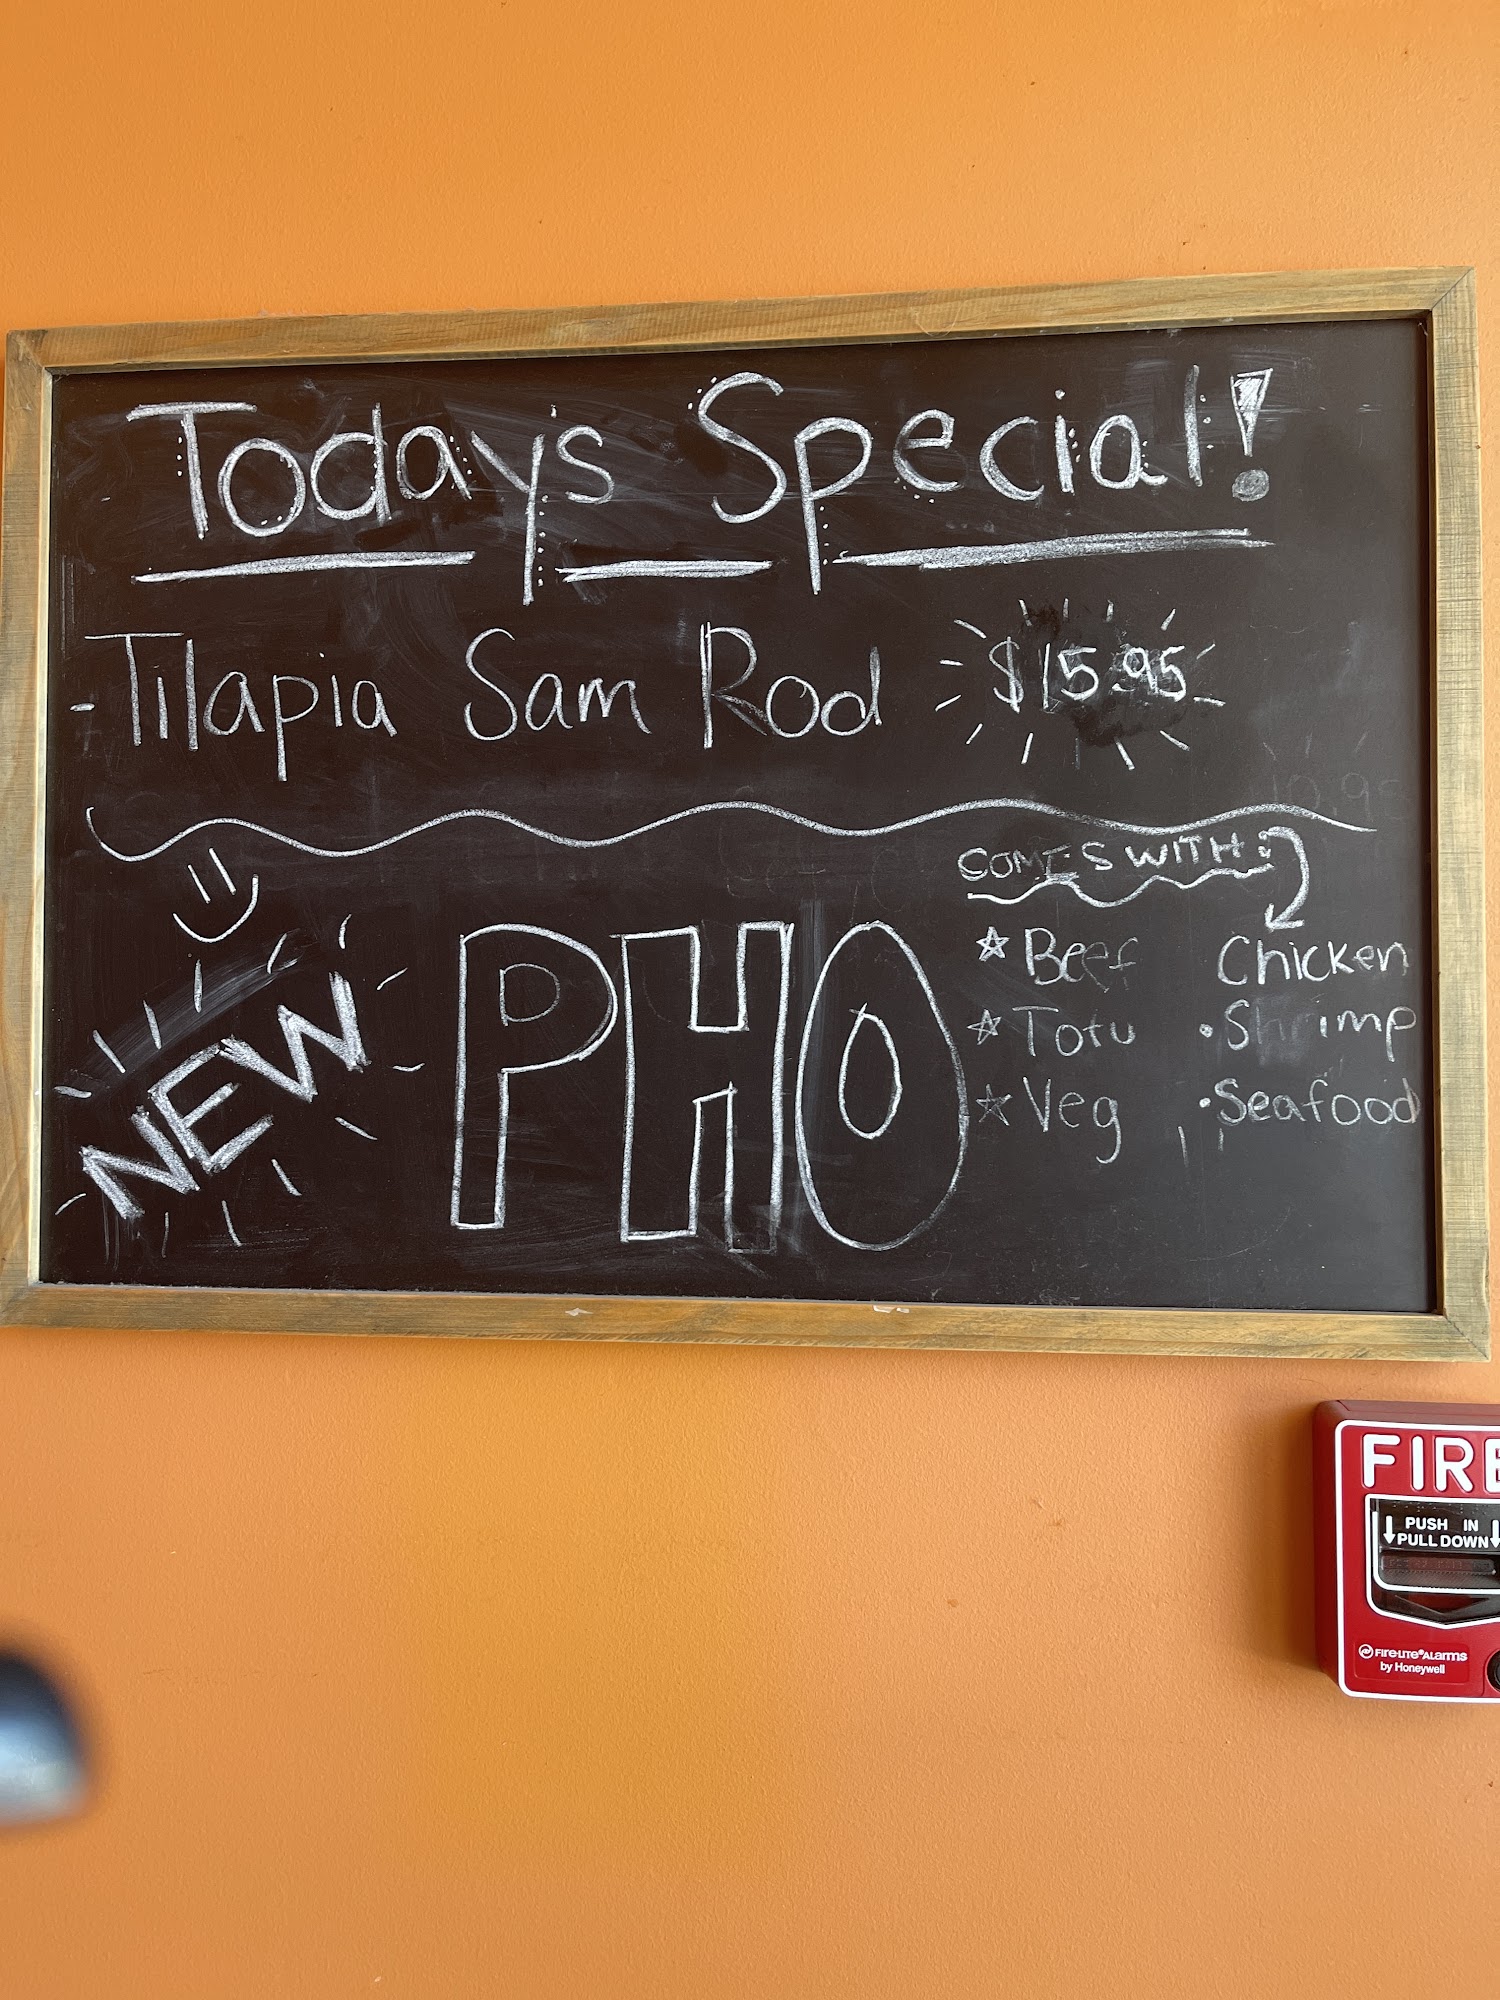 Todays Special!
- Tilapia Sam Rod $15.95
COMES WITH:
NEW
PHO
Beef Chicken
Tofu • Shrimp
Veg • Seafood
FIRE
PUSH IN
PULL DOWN
FIRE-LITE® ALARMS
by Honeywell